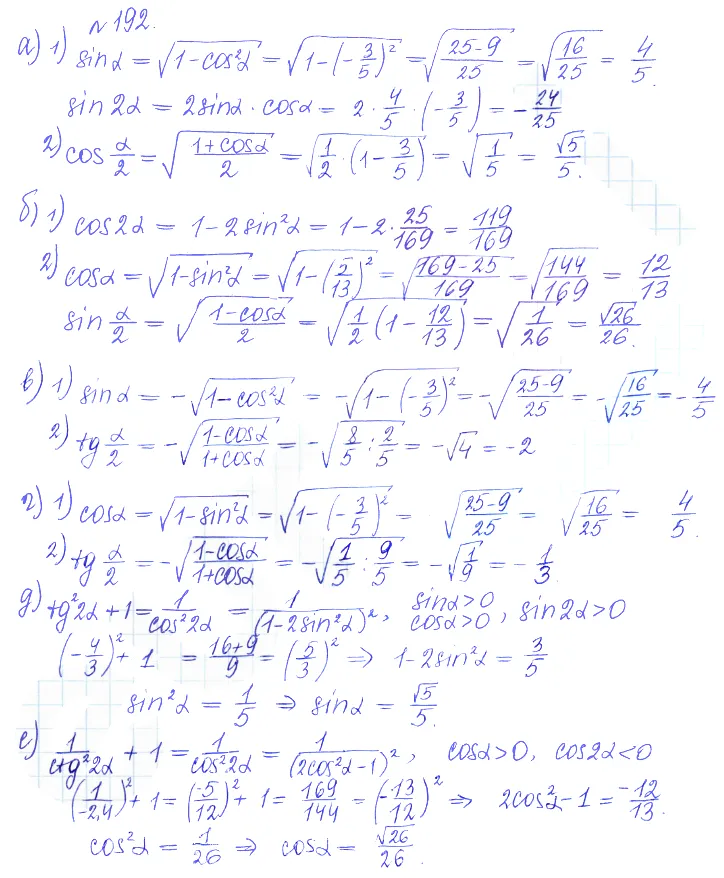 №192.
а) 1) sinα = √(1-cos²α) = √(1-(-3/5)²) = √((25-9)/25) = √(16/25) = 4/5.
sin2α = 2sinα · cosα = 2 · 4/5 · (-3/5) = -24/25
2) cos α/2 = √((1+cosα)/2) = √(1/2 · (1-3/5)) = √(1/5) = √5/5.
б) 1) cos2α = 1-2sin²α = 1-2·25/169 = 119/169
2) cosα = √(1-sin²α) = √(1-(5/13)²) = √((169-25)/169) = √(144/169) = 12/13
sin α/2 = √((1-cosα)/2) = √(1/2 (1-12/13)) = √(1/26) = √26/26.
в) 1) sinα = -√(1-cos²α) = -√(1-(-3/5)²) = -√((25-9)/25) = -√(16/25) = -4/5
2) tg α/2 = -√((1-cosα)/(1+cosα)) = -√(8/5 : 2/5) = -√4 = -2
г) 1) cosα = √(1-sin²α) = √(1-(-3/5)²) = √((25-9)/25) = √(16/25) = 4/5.
2) tg α/2 = -√((1-cosα)/(1+cosα)) = -√(1/5 : 9/5) = -√(1/9) = -1/3.
д) tg²2α + 1 = 1/cos²2α = 1/(1-2sin²α)², sinα>0 cosα>0, sin2α>0
(-4/3)² + 1 = (16+9)/9 = (5/3)² ⇒ 1-2sin²α = 3/5
sin²α = 1/5 ⇒ sinα = √5/5.
е) 1/ctg²2α + 1 = 1/cos²2α = 1/(2cos²α-1)², cosα>0, cos2α<0
(1/-2,4)² + 1 = (-5/12)² + 1 = 169/144 = (-13/12)² ⇒ 2cos²α-1 = -12/13.
cos²α = 1/26 ⇒ cosα = √26/26.